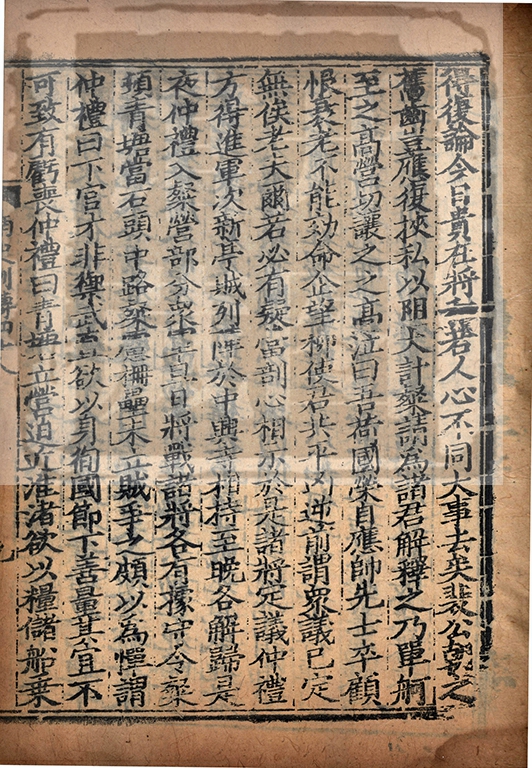 得復論今日貴在將若人心不同大事去矣裴公之
舊齒豈應復挾私以阻大計粲請為諸君解釋之乃單舸
至之高營切讓之之高泣曰吾荷國榮自應帥先士卒顧
恨衰老不能効命企望柳使君共平凶逆前謂眾議已定
無俟老夫爾若必有疑當剖心相示於是諸將定議仲禮
方得進軍次新亭城列陣於中興寺相持至晚各解歸是
夜仲禮入粲營部分眾軍旦日將戰諸將各有據守令粲
頓青塘當石頭中路粲慮柵壘未立賊爭之頗以為憚謂
仲禮曰下官才非禦武直欲以身徇國節下善量其宜不
可致有虧喪仲禮曰青塘立營迫近淮渚欲以糧儲船乘